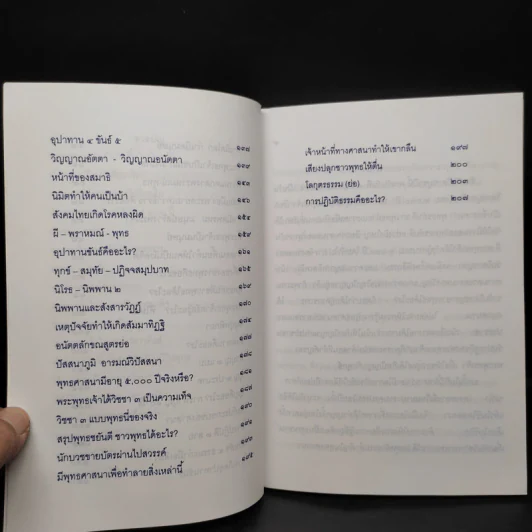 อุปาทาน ๔ ขันธ์ ๕ ๑๓๘
วิญญาณอัตตา - วิญญาณอนัตตา ๑๓๙
หน้าที่ของสมาธิ ๑๔๐
นิมิตทำให้คนเป็นบ้า ๑๔๖
สังคมไทยเกิดโรคหลงผิด ๑๕๔
ผี – พราหมณ์ - พุทธ ๑๕๙
อุปาทานขันธ์คืออะไร? ๑๖๑
ทุกข์ – สมุทัย – ปฏิจจสมุปบาท ๑๖๕
นิโรธ – นิพพาน ๒ ๑๖๙
นิพพานและสังสารวัฏฏ์ ๑๘๐
เหตุปัจจัยทำให้เกิดสัมมาทิฏฐิ
อนัตตลักขณสูตรย่อ
ปัสสนาภูมิ อารมณ์วิปัสสนา
พุทธศาสนามีอายุ ๕,๐๐๐ ปีจริงหรือ?
พระพุทธเจ้าได้วิชชา ๓ เป็นความเท็จ
วิชชา ๓ แบบพุทธนี่ของจริง
สรุปพุทธชยันตี ชาวพุทธได้อะไร?
นักบวชขายบัตรผ่านไปสวรรค์
มีพุทธศาสนาเพื่อทำลายสิ่งเหล่านี้ ๑๙๕
เจ้าหน้าที่ทางศาสนาทำให้เขากลืน ๑๙๘
เสียงปลุกชาวพุทธให้ตื่น ๒๐๐
โลกุตรธรรม (ย่อ) ๒๐๓
การปฏิบัติธรรมคืออะไร? ๒๐๗